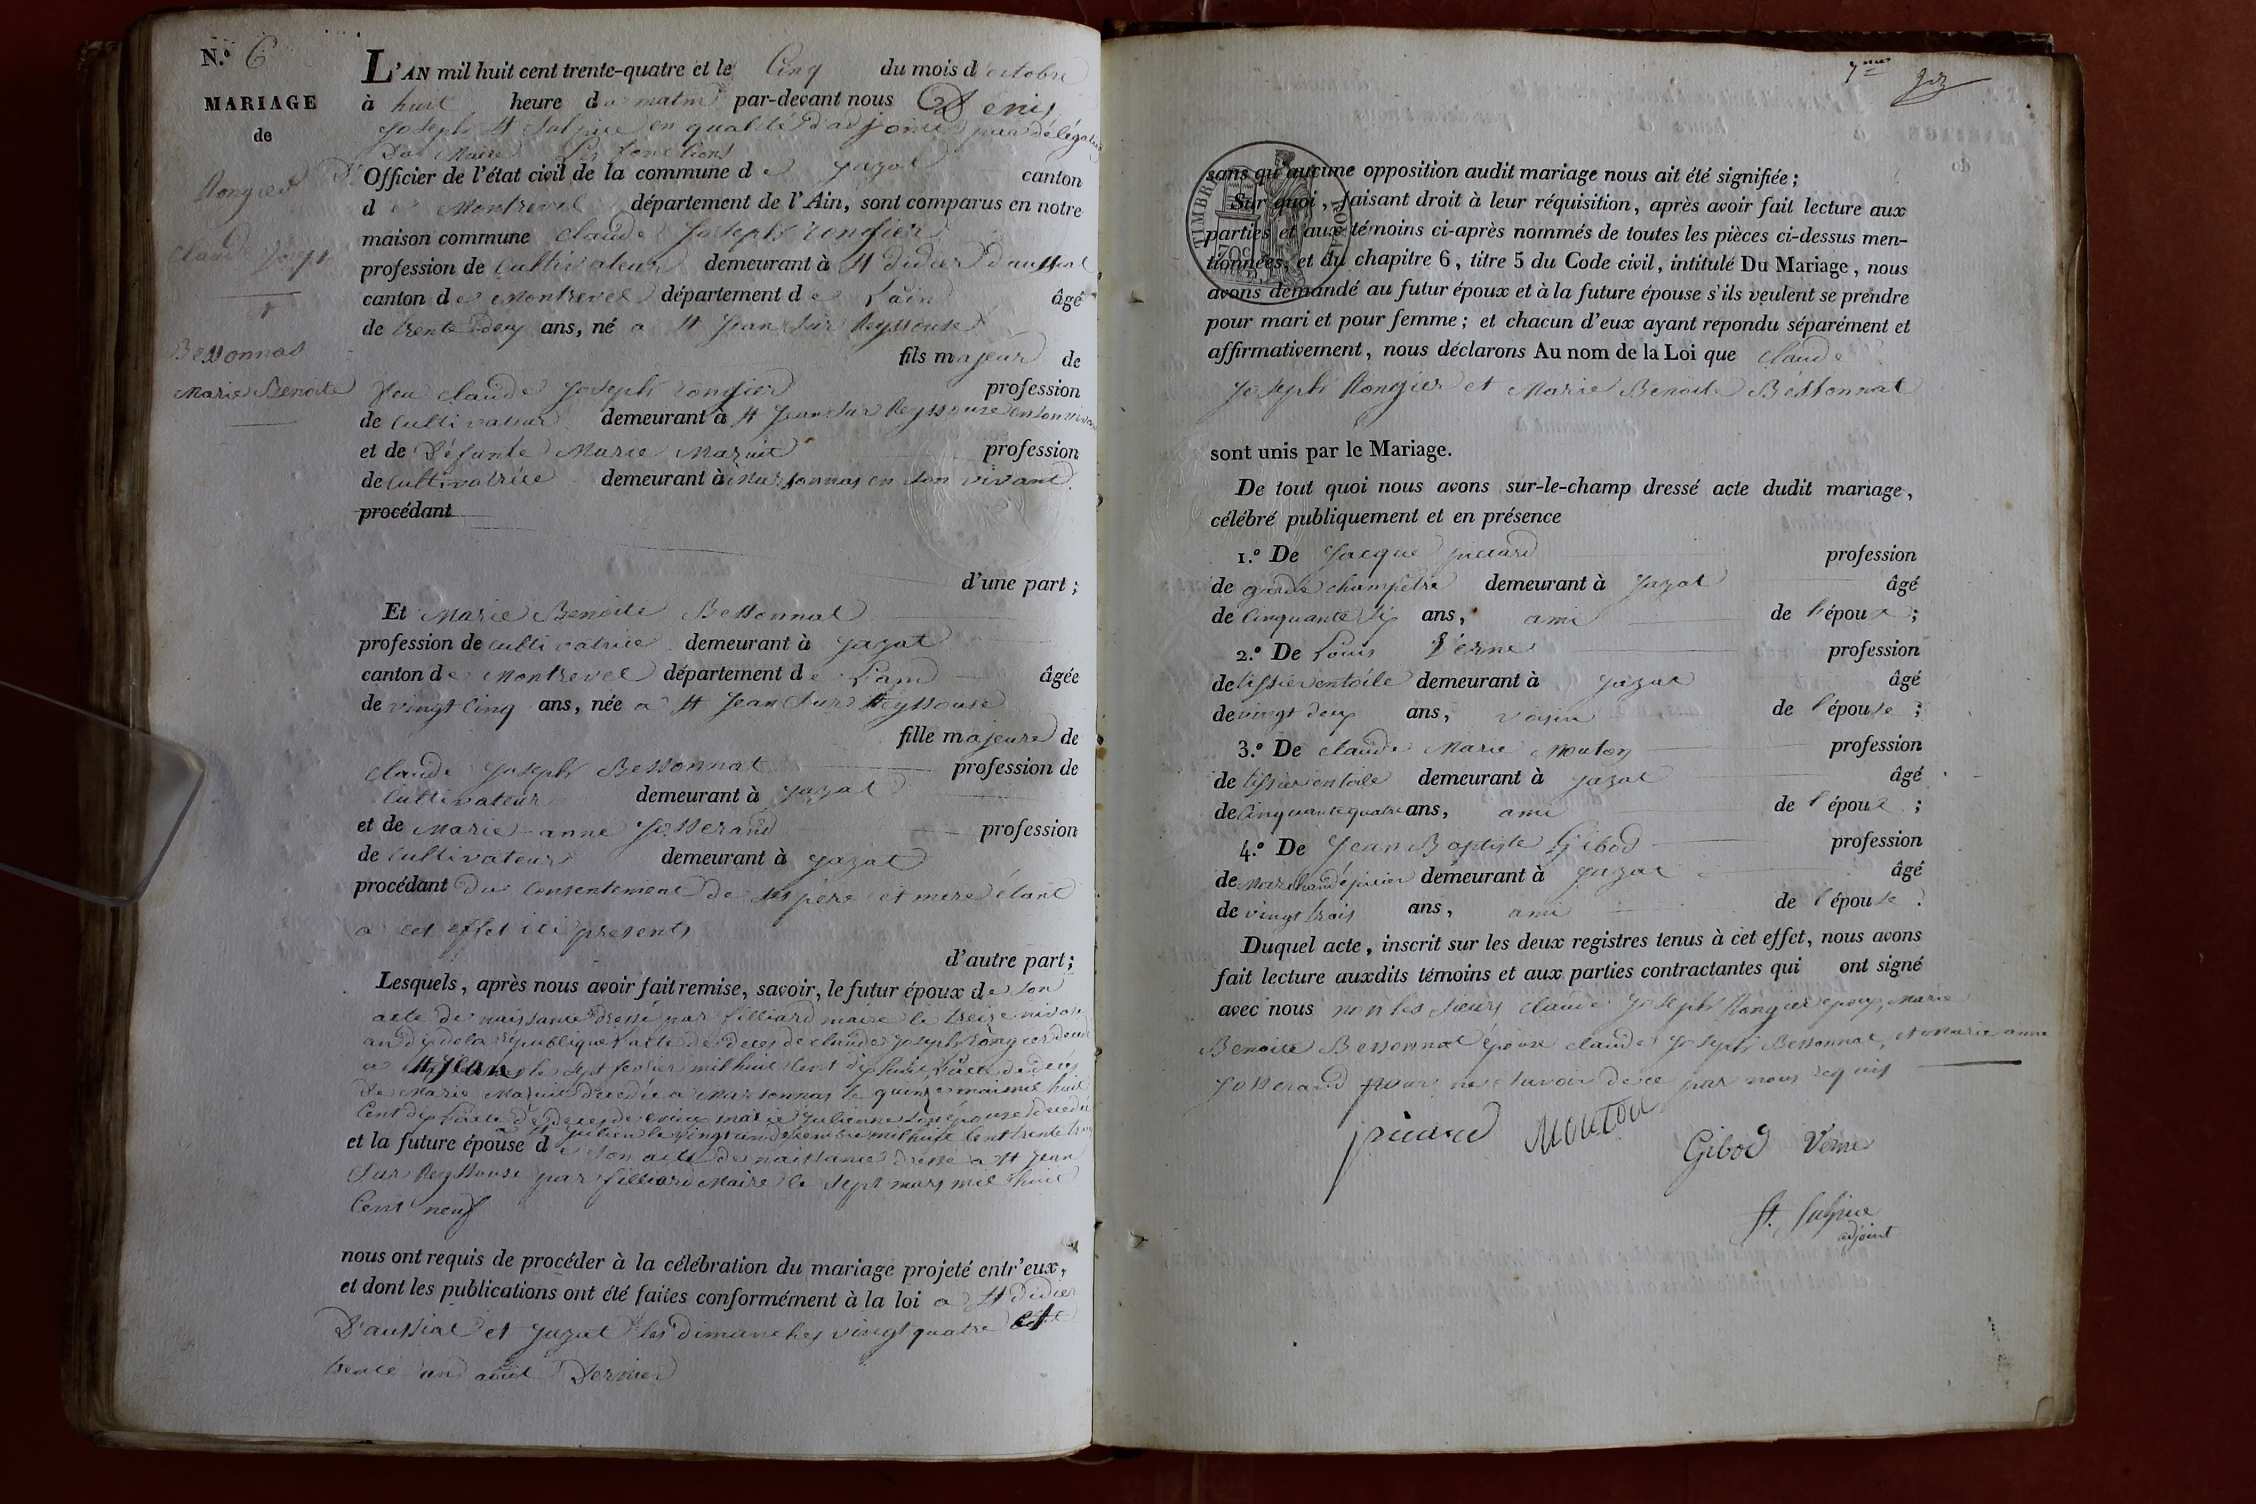 N.º 6
MARIAGE
de
Rongier
Claude Joseph
&
Bessonnas
Marie Benoite
L'AN mil huit cent trente-quatre et le Cinq du mois d'octobre
à huit heure du matin par-devant nous Denis
Joseph St Sulpice en qualité d'adjoint par délégation
Du Maire les fonctions
D'Officier de l'état civil de la commune de Jayat canton
de Montrevel département de l'Ain, sont comparus en notre
maison commune Claude Joseph rongier
profession de Cultivateur demeurant à St didier d'aussiat
canton de Montrevel département de L'ain âgé
de trente deux ans, né a St Jean Sur Reyssouse
fils majeur de
feu Claude Joseph rongier profession
de Cultivateur demeurant à St Jean Sur Reyssouse en son vivant
et de Défunte Marie Maruit profession
de Cultivatrice demeurant à Marsonnas en son vivant
procédant
d'une part ;
Et Marie Benoite Bessonnat
profession de cultivatrice demeurant à Jayat
canton de Montrevel département de L'ain âgée
de vingt Cinq ans, née a St Jean Sur Reyssouse
fille majeure de
Claude Joseph Bessonnat profession de
Cultivateur demeurant à Jayat
et de Marie-anne Josserand profession
de Cultivateur demeurant à Jayat
procédant du Consentement de ses père et mere étant
a cet effet ici presents
d'autre part ;
Lesquels, après nous avoir fait remise, savoir, le futur époux de son
acte de naissance dressé par filliard maire le treize nivose
an dix de la république l'acte de deces de Claude Joseph rongier
a St Jean le sept fevrier mil huit Cent dix huit L'acte de decés
De Marie Maruit decedée a Marsonnas le quinze mai mil huit
Cent dix L'acte de deces de marie Julienne son épouse decedée
St Julien le vingt un decembre mil huit Cent trente trois
et la future épouse de son acte de naissance dressé a St Jean
Sur Reyssouse par filliard Maire le sept mars mil huit
Cent neuf
nous ont requis de procéder à la célébration du mariage projeté entr'eux,
et dont les publications ont été faites conformément à la loi a St Didier
D'aussiat et Jayat les dimanches vingt quatre et
trente un aout Dernier
7me
TIMBRE ROYAL
70c
sans qu'aucune opposition audit mariage nous ait été signifiée ;
Sur quoi, faisant droit à leur réquisition, après avoir fait lecture aux
parties et aux témoins ci-après nommés de toutes les pièces ci-dessus men-
tionnées, et du chapitre 6, titre 5 du Code civil, intitulé Du Mariage, nous
avons demandé au futur époux et à la future épouse s'ils veulent se prendre
pour mari et pour femme ; et chacun d'eux ayant repondu séparément et
affirmativement, nous déclarons Au nom de la Loi que Claude
Joseph Rongier et Marie Benoite Bessonnat
sont unis par le Mariage.
De tout quoi nous avons sur-le-champ dressé acte dudit mariage,
célébré publiquement et en présence
1.º De Jacque picard profession
de garde champêtre demeurant à Jayat âgé
de Cinquante six ans, ami de l'époux ;
2.º De Louis Verne profession
de tissier en toile demeurant à Jayat âgé
de vingt deux ans, voisin de l'épouse ;
3.º De Claude Marie Mouton profession
de tissier en toile demeurant à Jayat âgé
de Cinquante quatre ans, ami de l'époux ;
4.º De Jean Baptiste Gibod profession
de Marchand épicier demeurant à Jayat âgé
de vingt trois ans, ami de l'épouse.
Duquel acte, inscrit sur les deux registres tenus à cet effet, nous avons
fait lecture auxdits témoins et aux parties contractantes qui ont signé
avec nous non les Claude Joseph Rongier époux, Marie
Benoite Bessonnat épouse Claude Joseph Bessonnat, et Marie anne
Josserand pour ne savoir de ce par nous requis
picard Mouton
Gibod Verne
St. Sulpice
adjoint